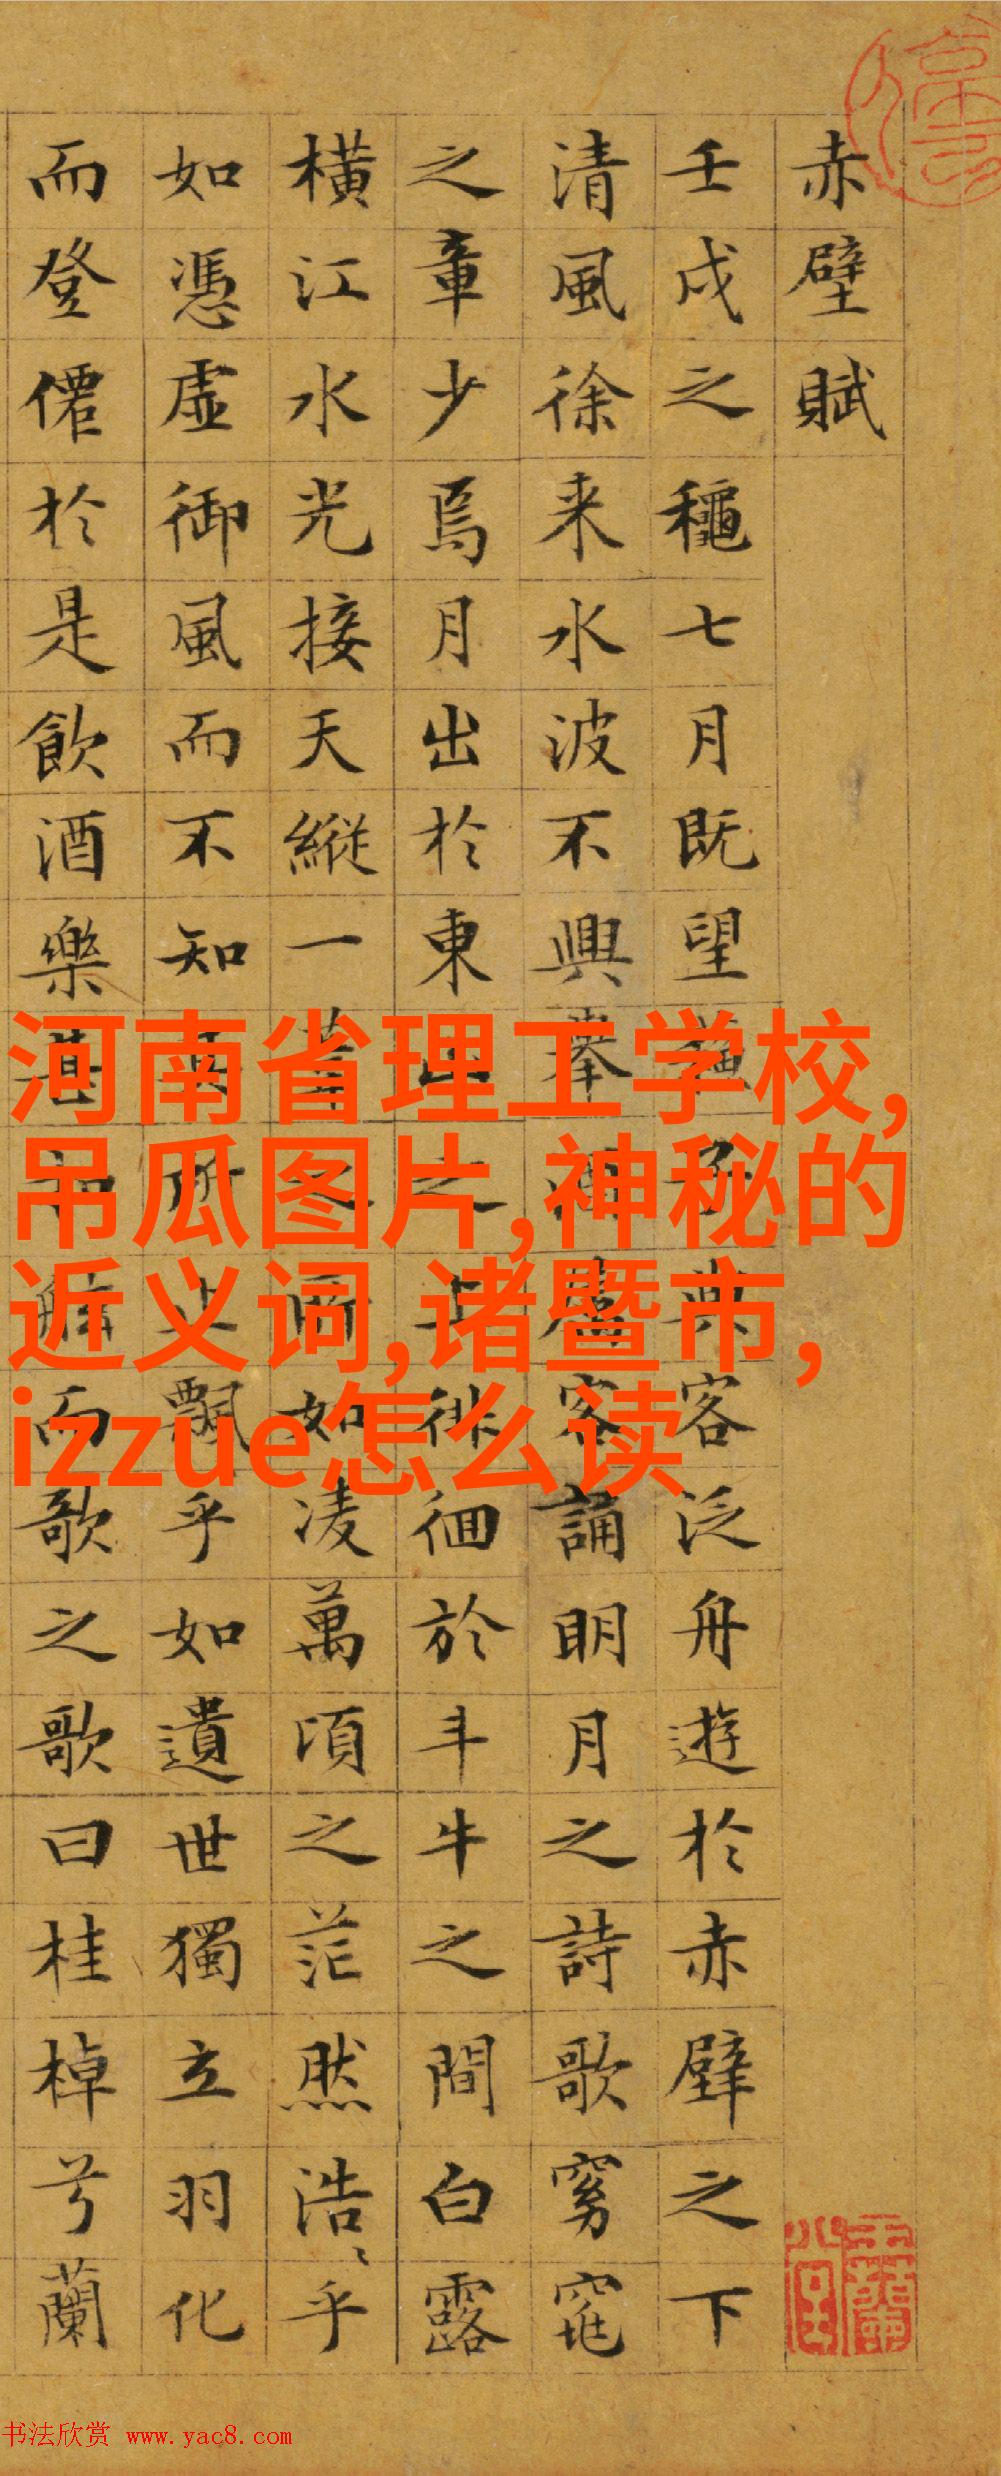 赤壁賦
壬戌之龝七月既望蘇子與客泛舟遊於赤壁之下
清風徐来水波不興舉酒屬客誦明月之詩歌窈窕
之章少焉月出於東山之上徘徊於斗牛之間白露
橫江水光接天縱一葦之所如凌萬頃之茫然浩〻乎
如憑虛御風而不知其所止飄乎如遺世獨立羽化
而登僊於是飲酒樂甚扣舷而歌之歌曰桂棹兮蘭
河南省理工学校,
吊瓜图片,神秘的
近义词,诸暨市,
izzue怎么读
书法欣赏 www.yac8.com